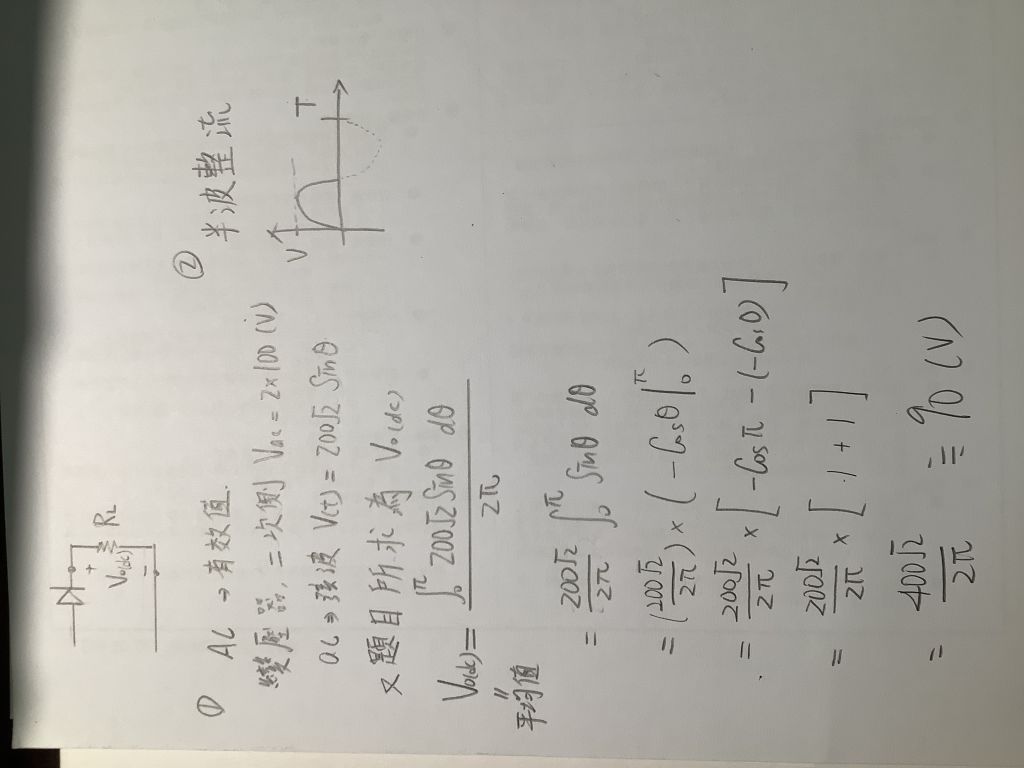 RL
+
Vo(dc)
-
① AC → 有效值.
變壓器, 二次側 Vac = 2×100 (V)
ac ⇒ 弦波 V(t) = 200√2 Sinθ
又題目所求為 Vo(dc)
Vo(dc) = ∫₀^π 200√2 Sinθ dθ / 2π
"
平均值
= 200√2/2π ∫₀^π Sinθ dθ
= (200√2/2π) × (-Cosθ|₀^π)
= 200√2/2π × [-Cosπ - (-Cos0)]
= 200√2/2π × [1 + 1]
= 400√2/2π ≒ 90 (V)
② 半波整流
V
T